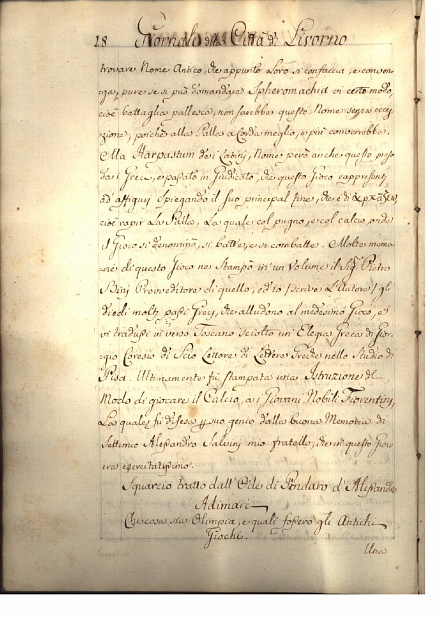 28 Giornale della Città di Livorno
trovare Nome Antico, che appunto Loro si confaccia, e conven-
ga, pure se si può domandare Spheromachia in certo modo,
cioè battaglia pallesca, non sarebbe questo Nome senza ecce-
zzione, poiché alla Palla a Corda meglio, e più converrebbe.
Ma Harpastum de i Latini, Nome però anche questo preso
da i Greci, e passato in Giudicato, che questo Gioco rappresenti,
ad Spiegando il suo principal fine, che è di
cioè rapir La Palla, La quale col pugno, e col calcio, onde
il Gioco si denomina, si batte, e si combatte. Molte memo-
rie di questo Gioco ne Stampò in un Volume il Sig. Pietro
Bini Provveditore di quello, ed io (scrive L'Autore) gli
diedi molti passi Greci, che alludono al medesimo Gioco, e
vi tradussi in verso Toscano Sciolto un Elegia Greca di Gior-
gio Coresio di Scio Lettore di Lettere Greche nello Studio di
Pisa. Ultimamente fù stampata una Istruzione del
Modo di giocare il Calcio, a i Giovani Nobili Fiorentini,
La quale fù distesa p suo genio dalla buona Memoria di
Settimio Alessandro Salvini mio fratello, che in questo Gioco
era esercitatissimo.
Squarcio tratto dall'Ode di Pindaro d'Alessandro
Adimari
Che cosa sia Olimpia, e quali fossero gli Antichi
Giochi.
Una